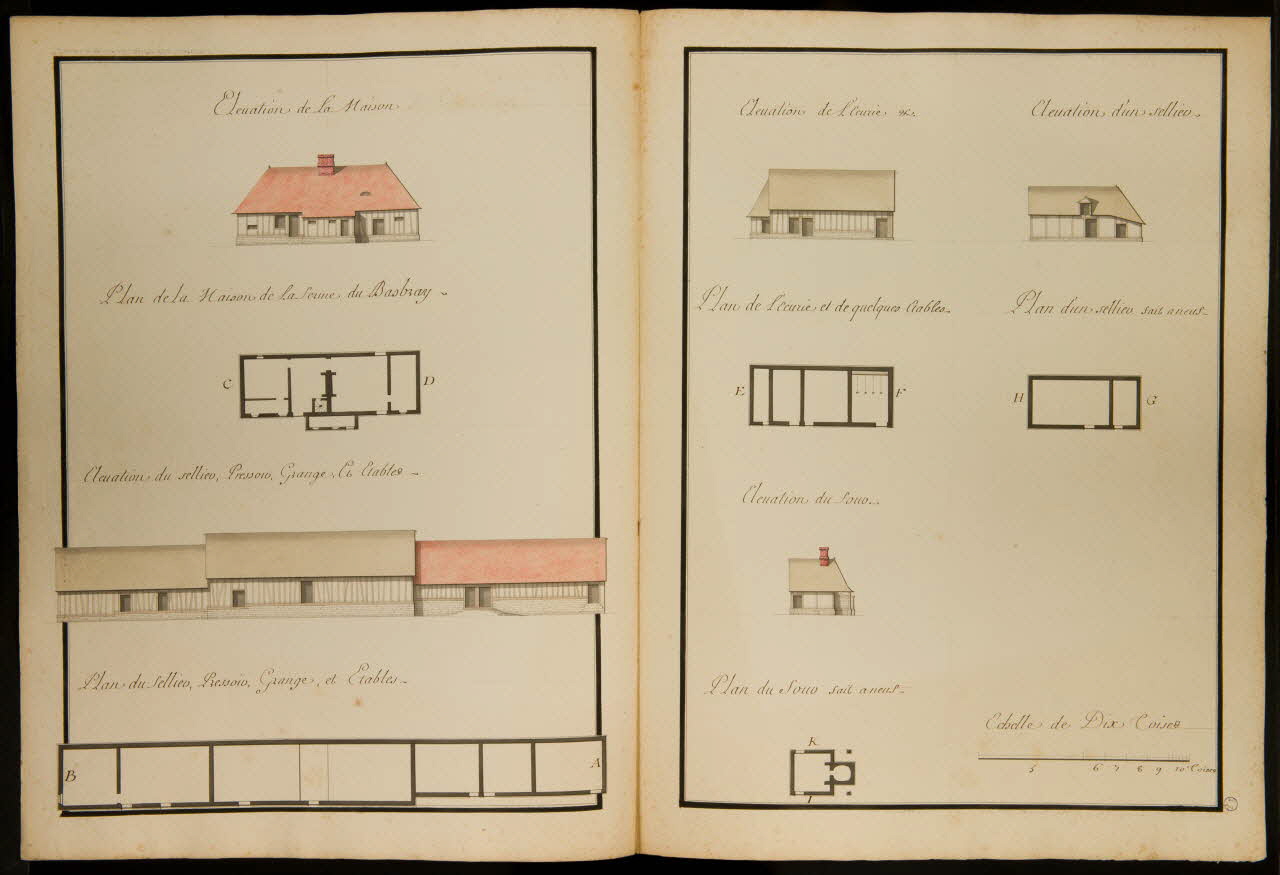 Elevation de la Maison
Plan de la Maison de la ferme du Basbray
C
D
Elevation du sellier, Pressoir, Grange, Et Etables
Plan du sellier, Pressoir, Grange, et Etables
B
A
Elevation de l'Ecurie &c.
Elevation d'un sellier
Plan de l'Ecurie et de quelques Etables
Plan d'un sellier fait aneuf
E
F
H
G
Elevation du Four
Plan du Four fait aneuf
K
I
Echelle de Dix Toises
5 6 7 8 9 10 Toises